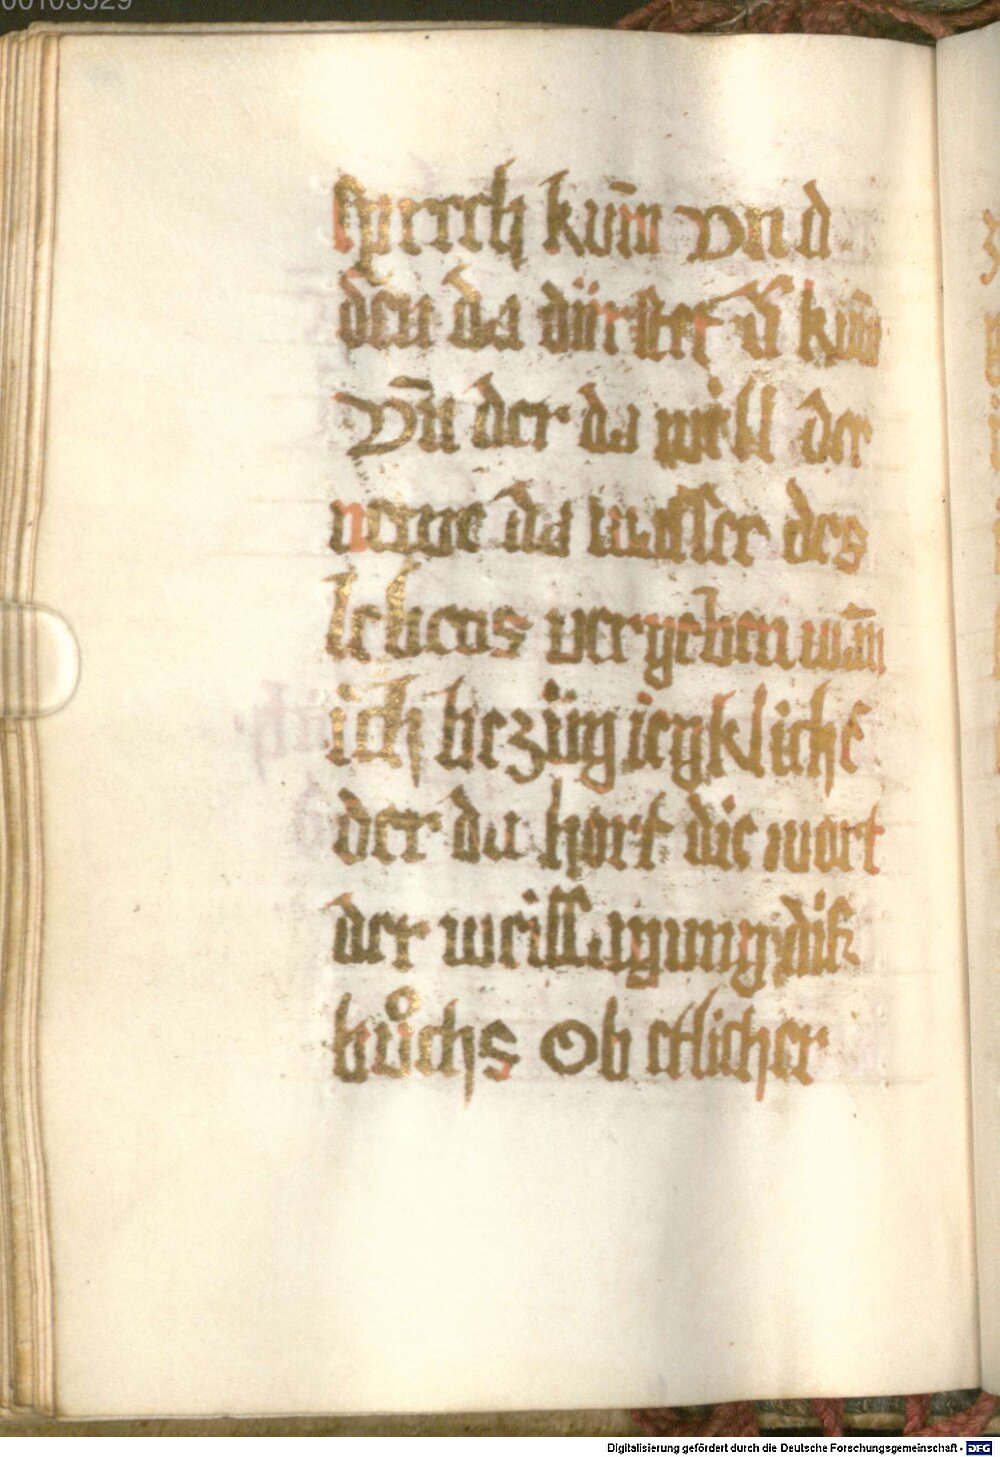 00103529
sprech kūm vnd
den da dürstet d' kūm
Vn̄ der da well der
neme da wasser des
lebens vergeben wān
ich bezüg iegkliche
der da hort die wort
der weissagung diß
bůchs Ob etlicher
Digitalisierung gefördert durch die Deutsche Forschungsgemeinschaft - DFG